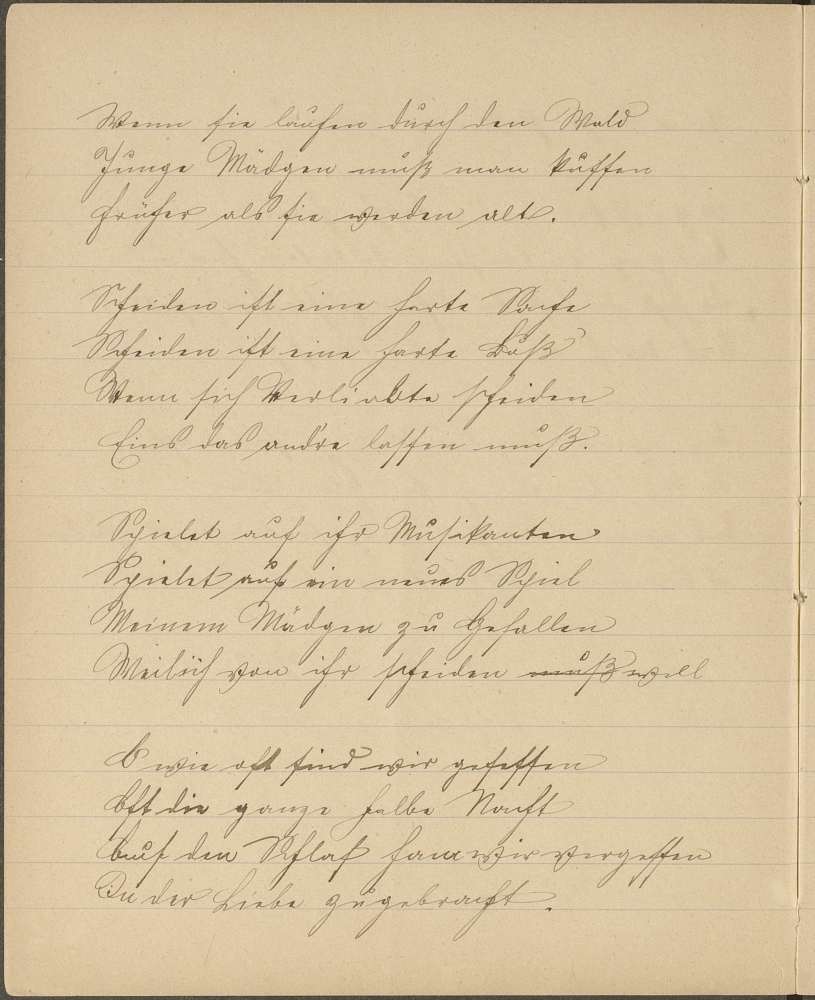 Wenn sie laufen durch den Wald
Junge Mädgen muß man küssen
früher als sie werden alt.
Scheiden ist eine harte Sache
Scheiden ist eine harte Buß
Wenn sich Verliebte scheiden
Eins das andre lassen muß.
Spielet auf ihr Musikanten
Spielet auf ein neues Spiel
Meinem Mädgen zu Gefallen
Weil ich von ihr scheiden muß will
O wie oft sind wir gesessen
Oft die ganze halbe Nacht
Auf den Schlaf ham wir vergessen
In der Liebe zugebracht.